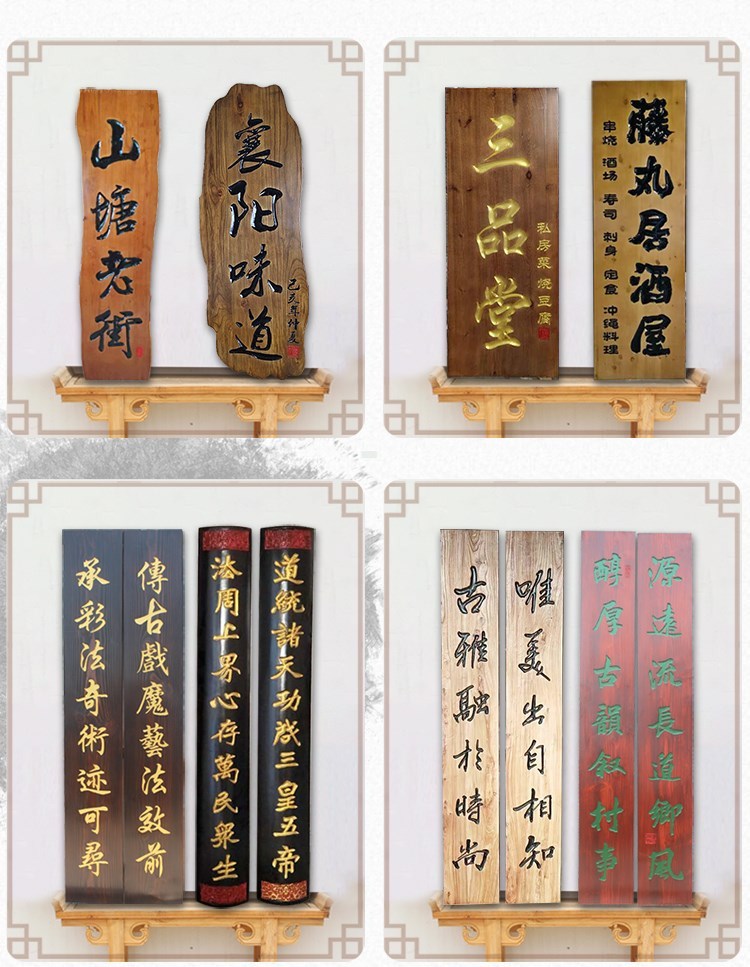 山塘老街
襄阳味道
己亥年仲夏
三品堂
私房菜 烧豆腐
藤丸居酒屋
串烧 酒场 寿司 刺身 定食 冲绳料理
傳古戲魔藝法效前
承彩法奇術迹可尋
道統諸天功啟三皇五帝
周上界心存萬民眾生
唯美出自相知
古雅融於時尚
源遠流長道鄉風
醇厚古韻叙村事